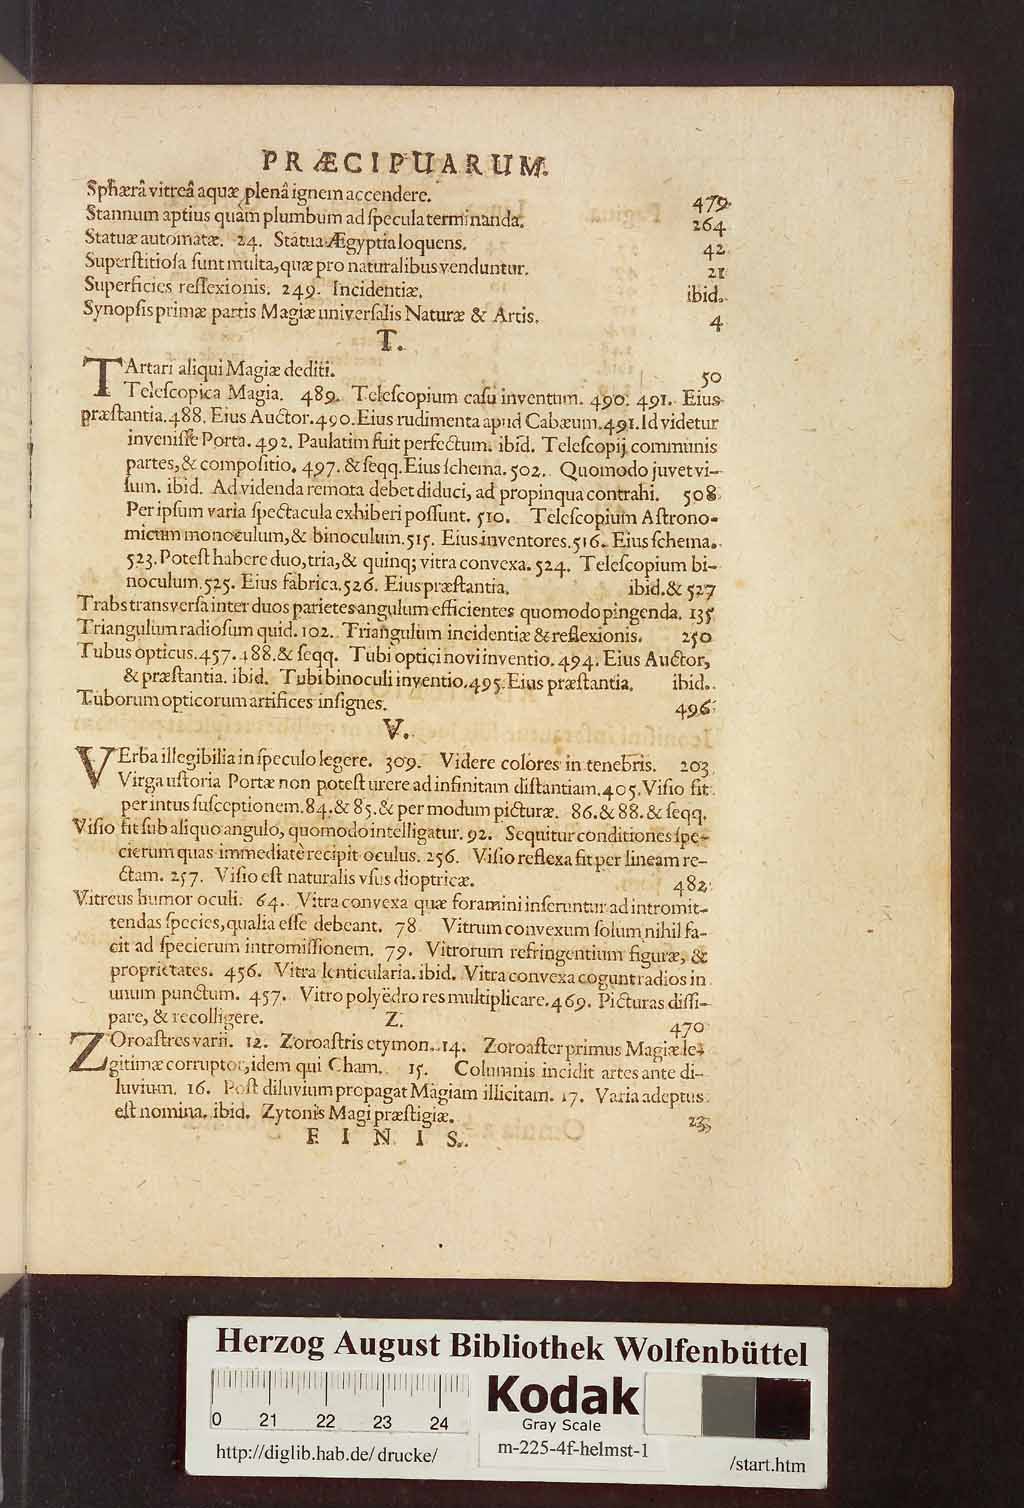 PRÆCIPUARUM.
Sphærâ vitreâ aquæ plenâ ignem accendere. 479.
Stannum aptius quàm plumbum ad ſpecula terminanda. 264
Statuæ automatæ. 24. Statua Ægyptia loquens. 42
Superſtitioſa ſunt multa, quæ pro naturalibus venduntur. 21
Superficies reflexionis. 249. Incidentiæ. ibid.
Synopſis primæ partis Magiæ univerſalis Naturæ & Artis. 4
T.
TArtari aliqui Magiæ dediti. 50
Teleſcopica Magia. 489. Teleſcopium caſu inventum. 490. 491. Eius
præſtantia. 488. Eius Auctor. 490. Eius rudimenta apud Cabæum. 491. Id videtur
inveniſſe Porta. 492. Paulatim fuit perfectum. ibid. Teleſcopij communis
partes, & compoſitio. 497. & ſeqq. Eius ſchema. 502. Quomodo juvet vi-
ſum. ibid. Ad videnda remota debet diduci, ad propinqua contrahi. 508
Per ipſum varia ſpectacula exhiberi poſſunt. 510. Teleſcopium Aſtrono-
micum monoculum, & binoculum. 515. Eius inventores. 516. Eius ſchema.
523. Poteſt habere duo, tria, & quinq; vitra convexa. 524. Teleſcopium bi-
noculum. 525. Eius fabrica. 526. Eius præſtantia. ibid. & 527
Trabs transverſa inter duos parietes angulum efficientes quomodo pingenda. 135
Triangulum radioſum quid. 102. Triangulum incidentiæ & reflexionis. 250
Tubus opticus. 457. 488. & ſeqq. Tubi optici novi inventio. 494. Eius Auctor,
& præſtantia. ibid. Tubi binoculi inventio. 495. Eius præſtantia. ibid.
Tuborum opticorum artifices inſignes. 496
V.
VErba illegibilia in ſpeculo legere. 309. Videre colores in tenebris. 203
Virga uſtoria Portæ non poteſt urere ad infinitam diſtantiam. 405. Viſio fit
per intus ſuſceptionem. 84. & 85. & per modum picturæ. 86. & 88. & ſeqq.
Viſio fit ſub aliquo angulo, quomodo intelligatur. 92. Sequitur conditiones ſpe-
cierum quas immediatè recipit oculus. 256. Viſio reflexa fit per lineam re-
ctam. 257. Viſio eſt naturalis vſus dioptricæ. 482
Vitreus humor oculi. 64. Vitra convexa quæ foramini inſeruntur ad intromit-
tendas ſpecies, qualia eſſe debeant. 78 Vitrum convexum ſolum nihil fa-
cit ad ſpecierum intromiſſionem. 79. Vitrorum refringentium figuræ, &
proprietates. 456. Vitra lenticularia. ibid. Vitra convexa cogunt radios in
unum punctum. 457. Vitro polyëdro res multiplicare. 469. Picturas diſſi-
pare, & recolligere. 470
Z.
ZOroaſtres varii. 12. Zoroaſtris etymon. 14. Zoroaſter primus Magiæ le-
gitimæ corruptor, idem qui Cham. 15. Columnis incidit artes ante di-
luvium. 16. Poſt diluvium propagat Magiam illicitam. 17. Varia adeptus
eſt nomina. ibid. Zytonis Magi præſtigiæ. 23
FINIS.
Herzog August Bibliothek Wolfenbüttel
0 21 22 23 24
Kodak
Gray Scale
http://diglib.hab.de/drucke/ m-225-4f-helmst-1 /start.htm